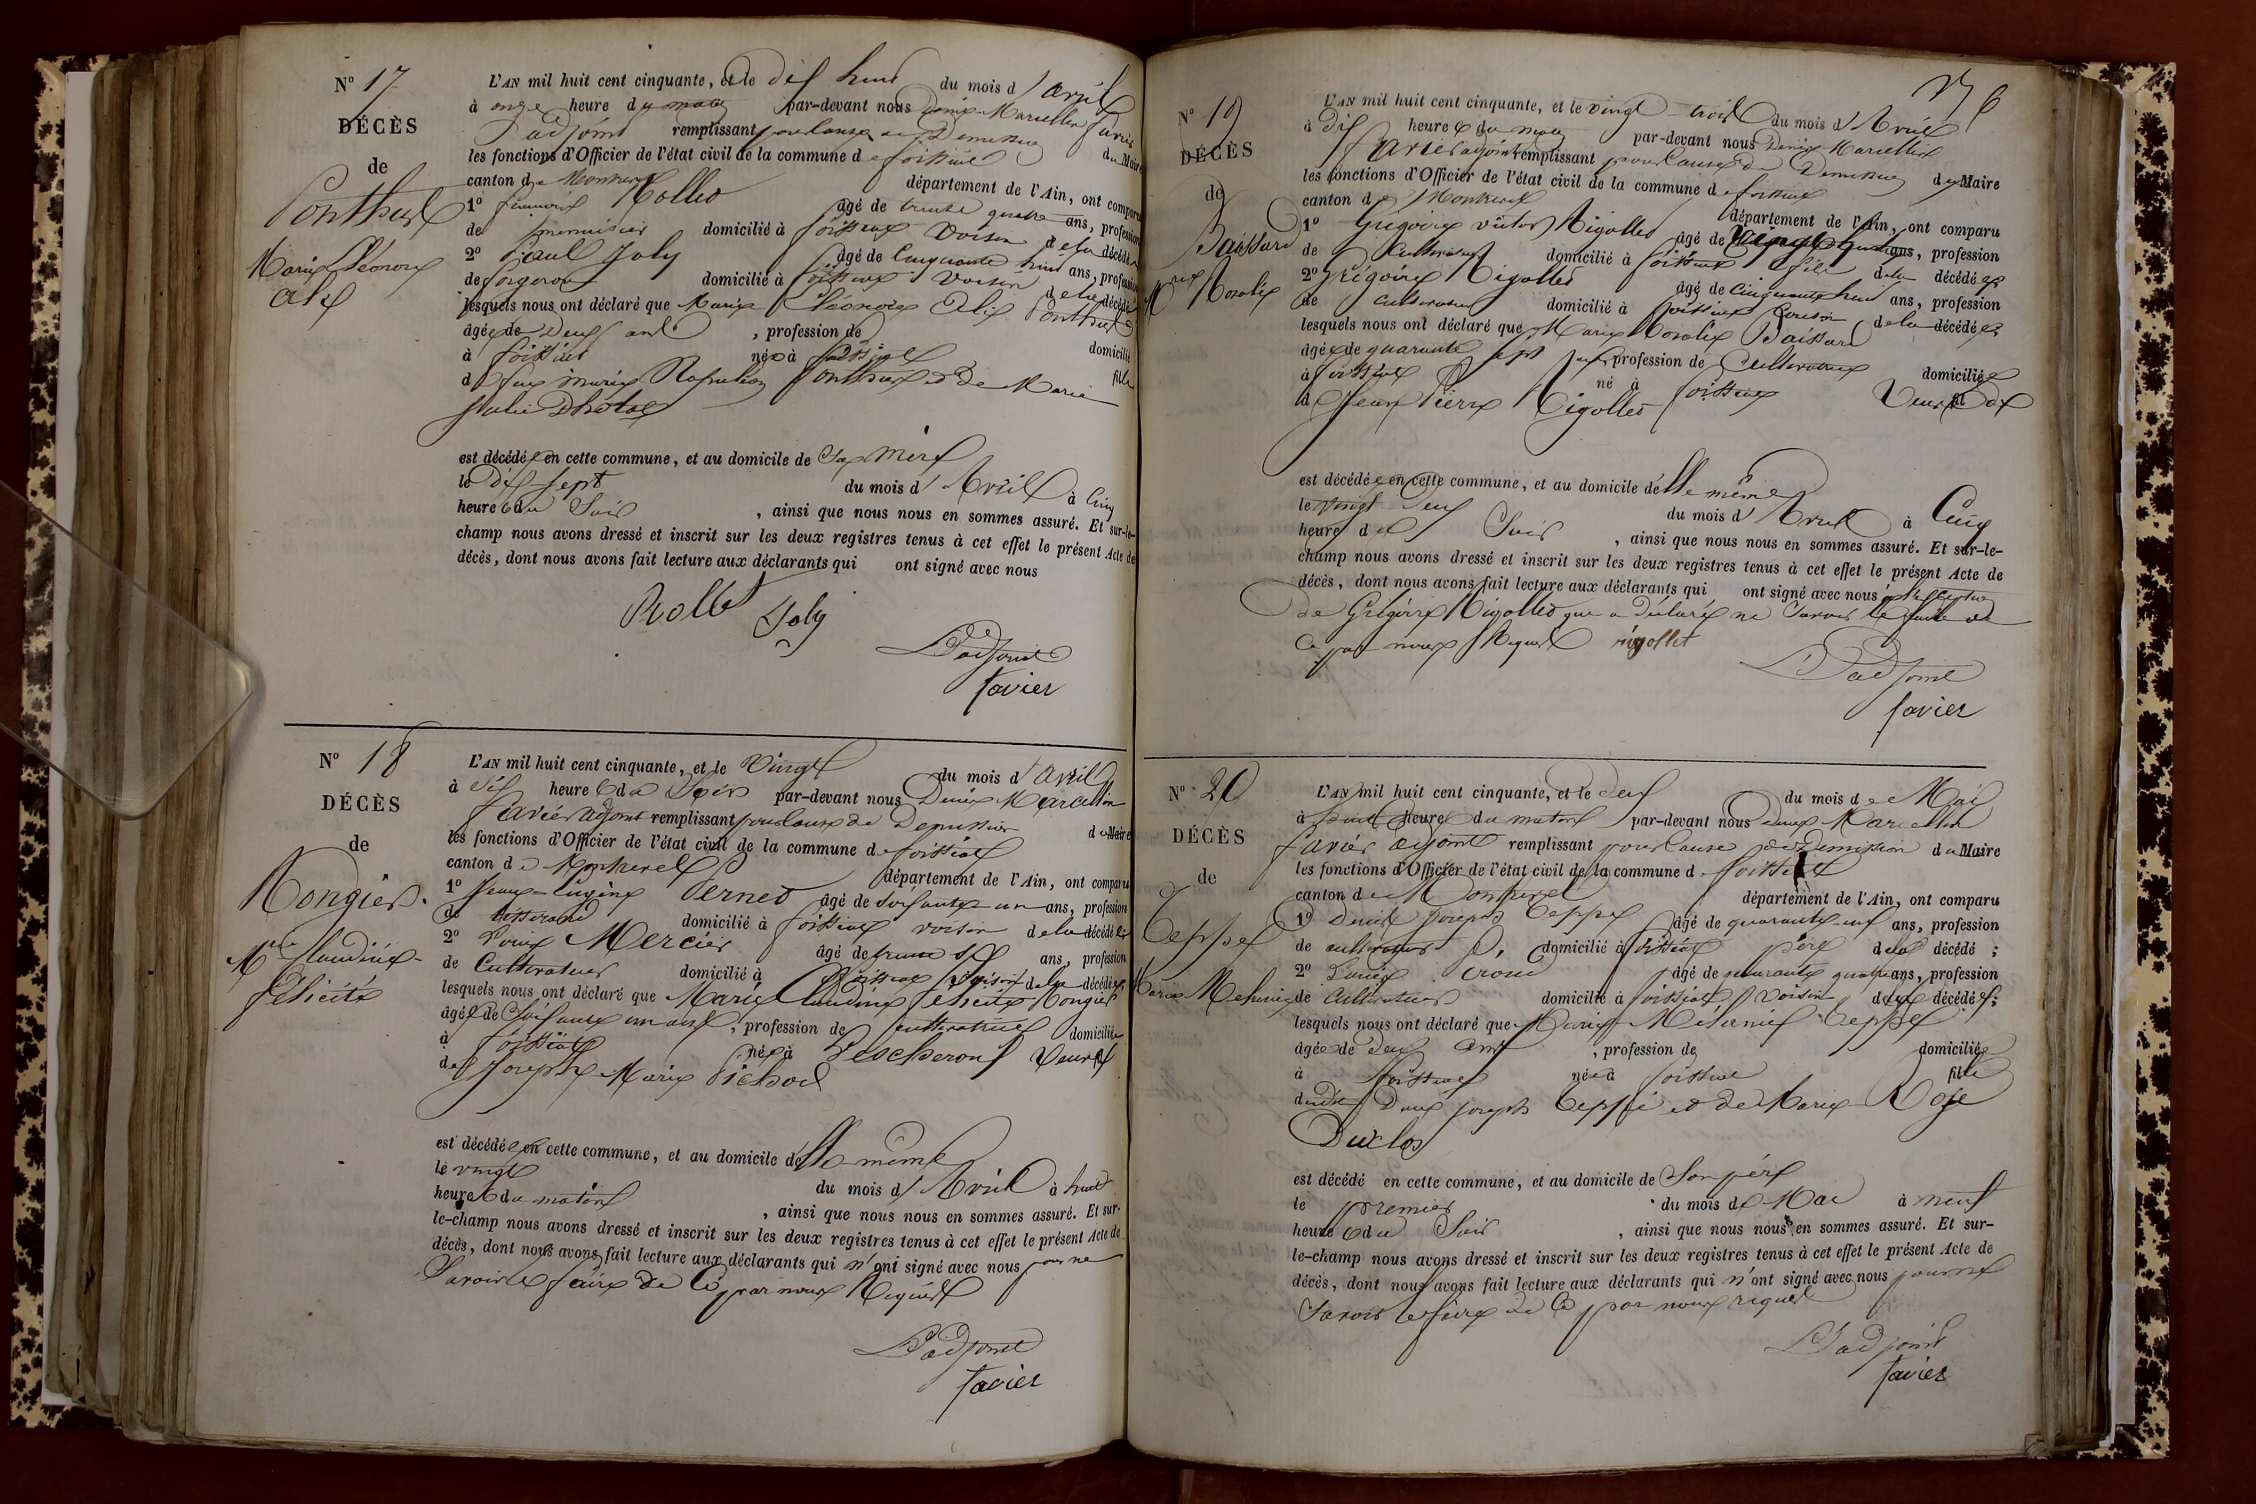 N° 17
DÉCÈS
de
Ponthus
Marie Léonore
Alix
L'AN mil huit cent cinquante, et le dix huit du mois d'avril
à onze heure du matin par-devant nous Denis Marcellin Favier
l'adjoint remplissant pour cause de Demission du Maire
les fonctions d'Officier de l'état civil de la commune de foissiat
canton de Montrevel département de l'Ain, ont comparu
1° Rollet âgé de trente quatre ans, profession
de menuisier domicilié à foissiat voisin de la décédée
2° Paul Joly âgé de cinquante huit ans, profession
de forgeron domicilié à foissiat voisin de la décédée
lesquels nous ont déclaré que Marie Léonore Alix Ponthus
âgée de deux ans , profession de domicilié
à foissiat née à foissiat fille
de feu Napoléon Ponthus et de Marie
Julie
est décédée en cette commune, et au domicile de sa mère
le dix sept du mois d'Avril à cinq
heure du soir , ainsi que nous nous en sommes assuré. Et sur-le-
champ nous avons dressé et inscrit sur les deux registres tenus à cet effet le présent Acte de
décès, dont nous avons fait lecture aux déclarants qui ont signé avec nous
Rollet Joly
L'adjoint
favier
N° 18
DÉCÈS
de
Rongier
Mie Claudine
félicité
L'AN mil huit cent cinquante, et le Vingt du mois d'avril
à dix heure du soir par-devant nous Denis Marcellin
favier adjoint remplissant pour cause de Demission du Maire
les fonctions d'Officier de l'état civil de la commune de foissiat
canton de Montrevel département de l'Ain, ont comparu
1° Pernet âgé de soixante un ans, profession
de tisserand domicilié à foissiat voisin de la décédée
2° Mercier âgé de trente six ans, profession
de Cultivateur domicilié à foissiat voisin de la décédée
lesquels nous ont déclaré que Marie Claudine félicité Rongier
âgée de soixante un ans, profession de cultivatrice domiciliée
à foissiat née à Lescheroux Veuve
de Joseph Marie Pichod
est décédée en cette commune, et au domicile d'Elle même
le vingt du mois d'Avril à huit
heure du matin , ainsi que nous nous en sommes assuré. Et sur-
le-champ nous avons dressé et inscrit sur les deux registres tenus à cet effet le présent Acte de
décès, dont nous avons fait lecture aux déclarants qui n'ont signé avec nous pour ne
Savoir le faire de ce par nous Requis
L'adjoint
favier
176
N° 19
DÉCÈS
de
Baissard
Mie Rosalie
L'AN mil huit cent cinquante, et le vingt trois du mois d'Avril
à dix heure du matin par-devant nous Denis Marcellin
favier adjoint remplissant pour cause de Demission du Maire
les fonctions d'Officier de l'état civil de la commune de foissiat
canton de Montrevel département de l'Ain, ont comparu
1° Grégoire victor Rigollet âgé de ans, profession
de Cultivateur domicilié à foissiat fils de la décédée
2° Grégoire Rigollet âgé de cinquante huit ans, profession
de cultivateur domicilié à foissiat Cousin de la décédée
lesquels nous ont déclaré que Marie Rosalie Baissard
âgée de quarante sept ans, profession de Cultivatrice domiciliée
à foissiat né à foissiat Veuve
de Jean Pierre Rigollet
est décédée en cette commune, et au domicile d'Elle même
le vingt deux du mois d'Avril à Cinq
heure du Soir , ainsi que nous nous en sommes assuré. Et sur-le-
champ nous avons dressé et inscrit sur les deux registres tenus à cet effet le présent Acte de
décès, dont nous avons fait lecture aux déclarants qui ont signé avec nous
de Grégoire Rigollet que a déclaré ne Savoir le faire de
ce par nous Requis rigollet
L'adjoint
favier
N° 20
DÉCÈS
de
Teppe
Marie Mélanie
L'AN mil huit cent cinquante, et le deux du mois de Mai
à heure du matin par-devant nous Denis Marcellin
favier adjoint remplissant pour cause de Demission du Maire
les fonctions d'Officier de l'état civil de la commune de foissiat
canton de Montrevel département de l'Ain, ont comparu
1° Denis Joseph Teppe âgé de quarante neuf ans, profession
de cultivateur domicilié à foissiat père de la décédé ;
2° âgé de quarante quatre ans, profession
de Cultivateur domicilié à foissiat voisin de la décédée ;
lesquels nous ont déclaré que Marie Mélanie Teppe
âgée de deux ans , profession de domiciliée
à foissiat née à foissiat fille
dudit Denis joseph Teppe et de Marie Rose
Duclos
est décédé en cette commune, et au domicile de Son père
le premier du mois de Mai à neuf
heure du Soir , ainsi que nous nous en sommes assuré. Et sur-
le-champ nous avons dressé et inscrit sur les deux registres tenus à cet effet le présent Acte de
décès, dont nous avons fait lecture aux déclarants qui n'ont signé avec nous pour ne
Savoir le faire de ce par nous requis
L'adjoint
favier